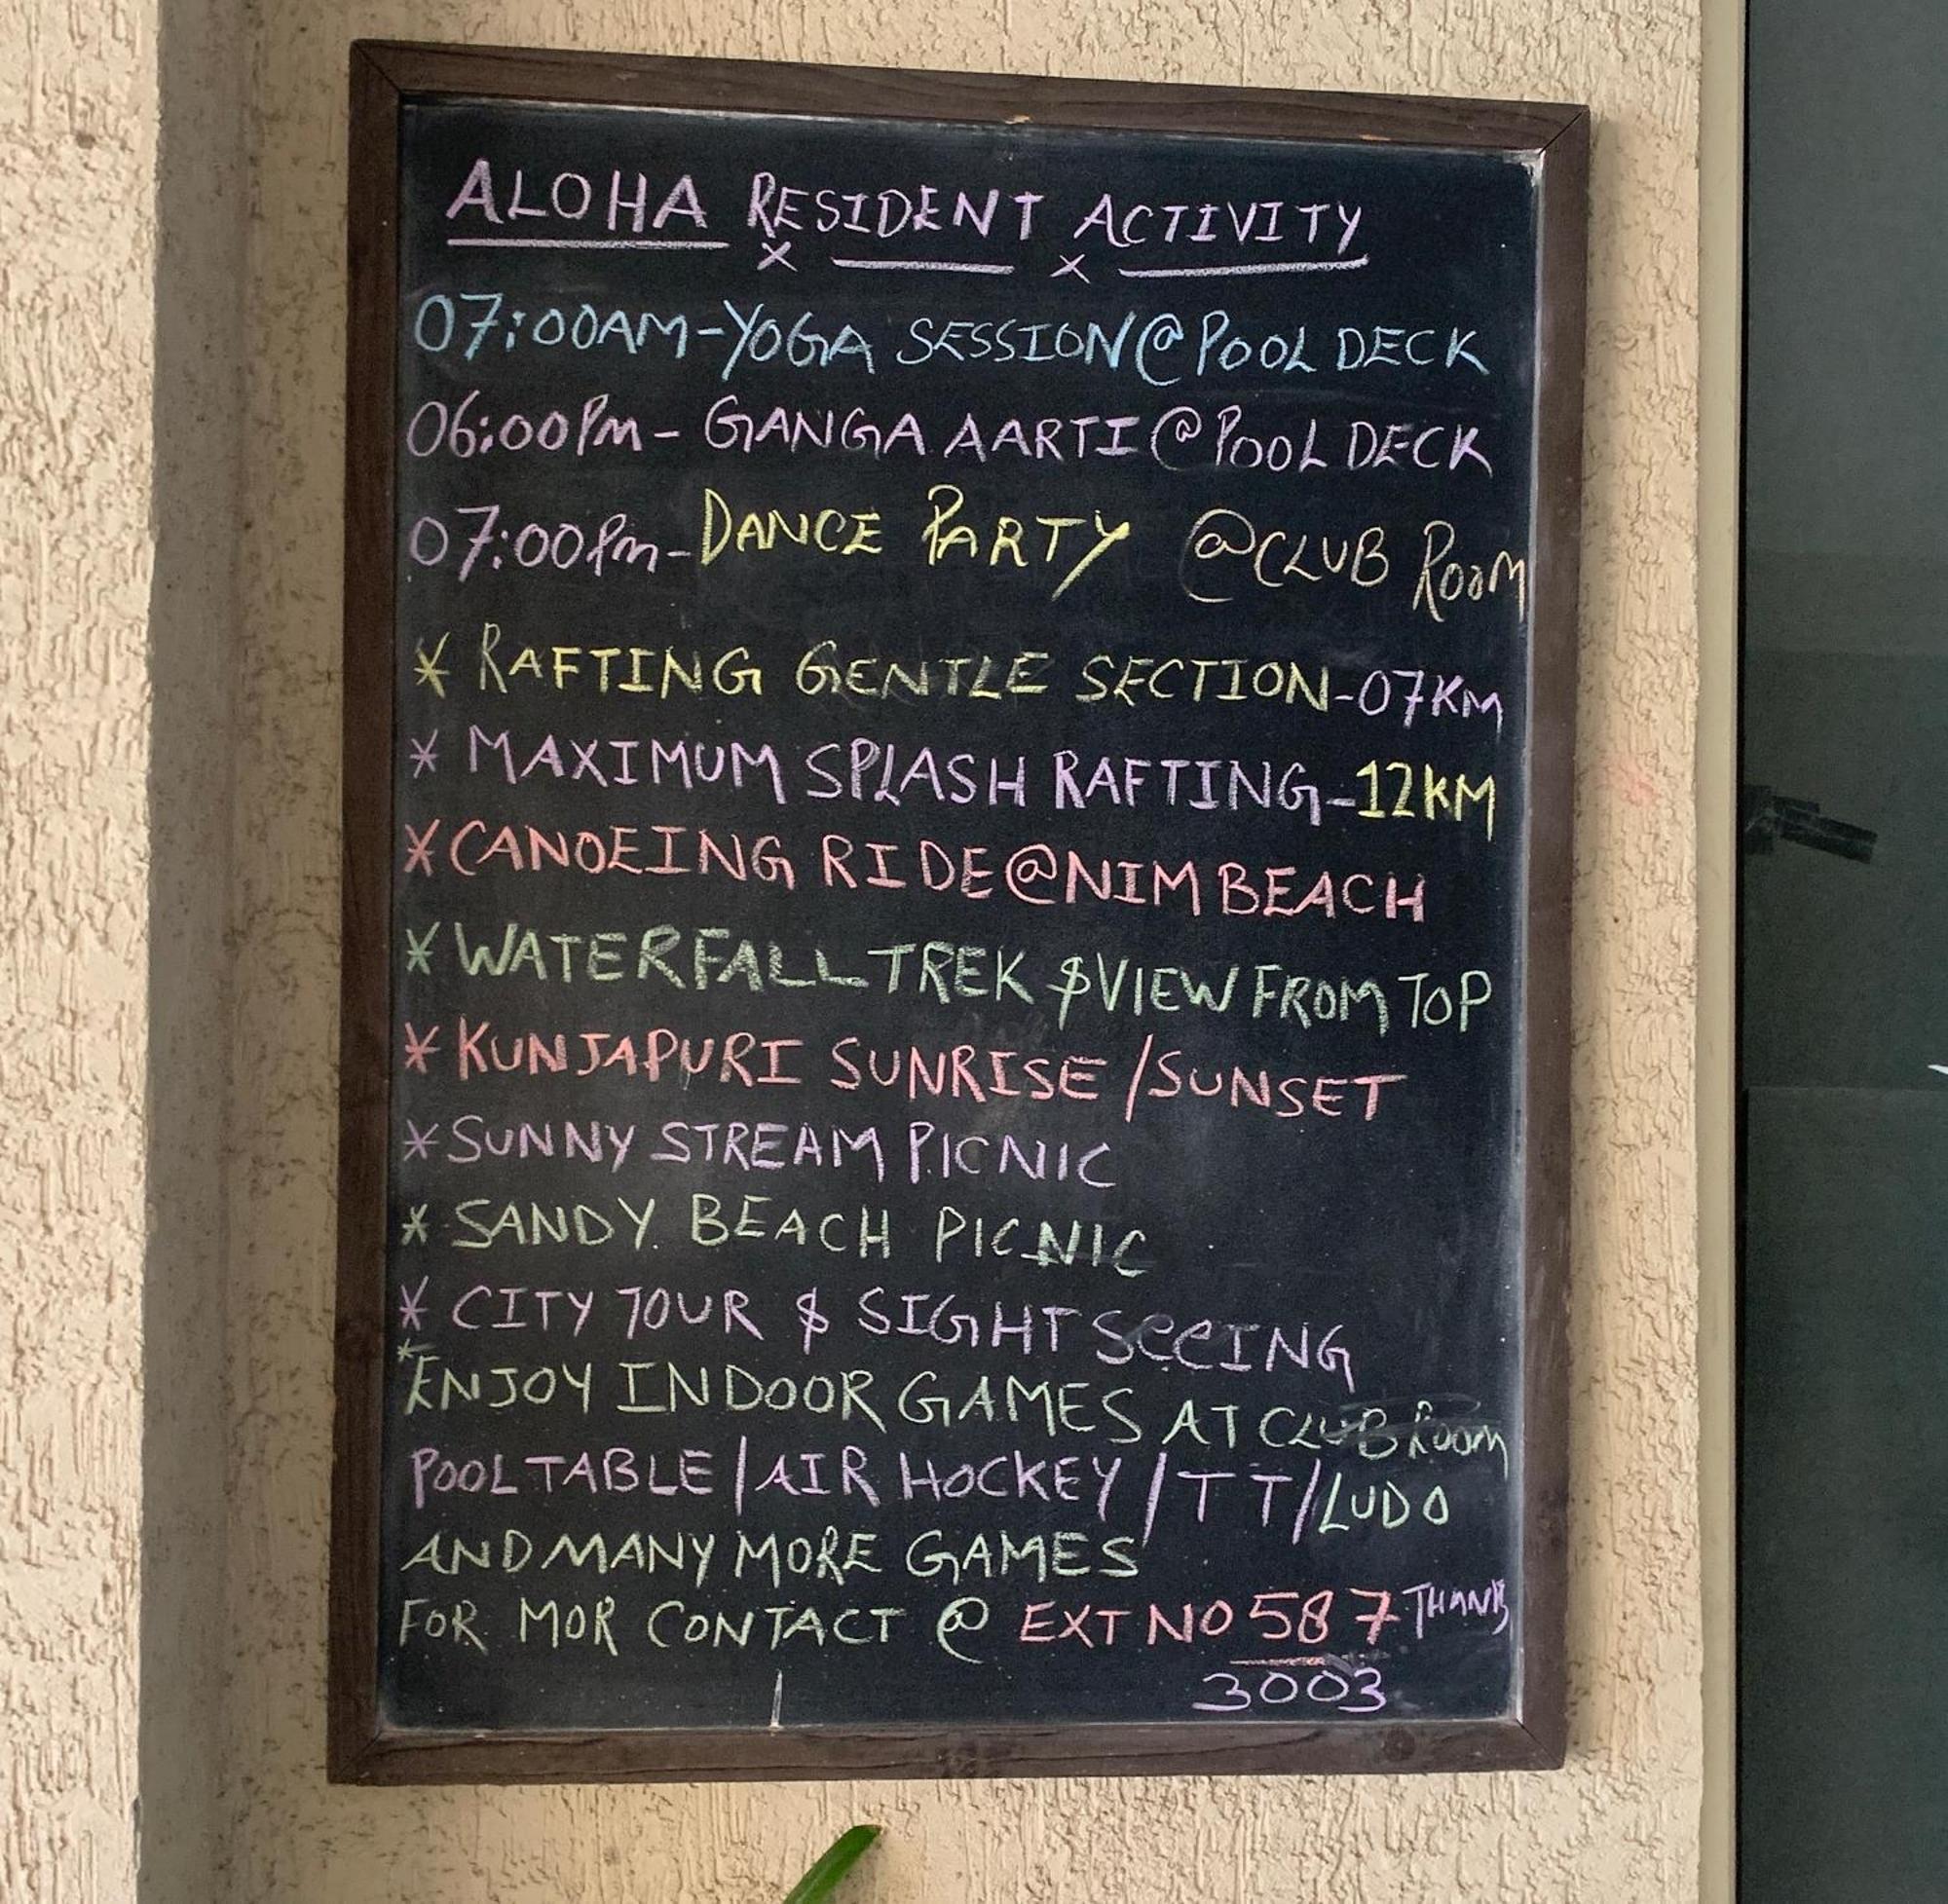 ALOHA RESIDENT ACTIVITY
07:00AM-YOGA SESSION@POOL DECK
06:00Pm- GANGA AARTI@POOL DECK
07:00Pm-DANCE PARTY @CLUB ROOM
* RAFTING GENTLE SECTION-07KM
* MAXIMUM SPLASH RAFTING-12KM
*CANOEING RIDE@NIM BEACH
*WATERFALL TREK $VIEW FROM TOP
*KUNJAPURI SUNRISE /SUNSET
*SUNNY STREAM PICNIC
*SANDY BEACH PICNIC
* CITY TOUR $ SIGHT SeeING
*ENJOY INDOOR GAMES AT CLUB ROOM
POOL TABLE/AIR HOCKEY/TT/LUDO
AND MANY MORE GAMES
FOR MOR CONTACT @ EXT NO 587 THANKS
3003